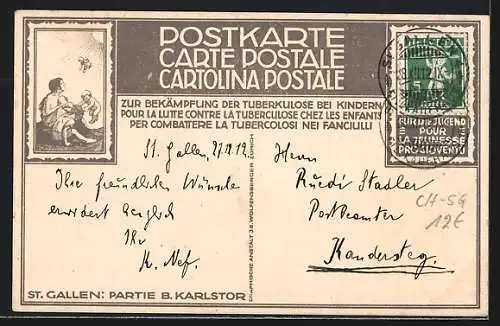 POSTKARTE
CARTE POSTALE
CARTOLINA POSTALE
ZUR BEKÄMPFUNG DER TUBERKULOSE BEI KINDERN
POUR LA LUTTE CONTRE LA TUBERCULOSE CHEZ LES ENFANTS
PER COMBATTERE LA TUBERCOLOSI NEI FANCIULLI
FÜR DIE JUGEND
POUR
LA JEUNESSE
PRO GIOVENTÙ
St. Gallen,
Ihre freundlichen Wünsche
erwidert
Ihr
K. Nef.
GRAPHISCHE ANSTALT J.E. WOLFENSBERGER ZÜRICH
Herrn
Ruedi Stadler
Postbeamter
Kandersteg.
CH-SG
12€
ST. GALLEN: PARTIE B. KARLSTOR